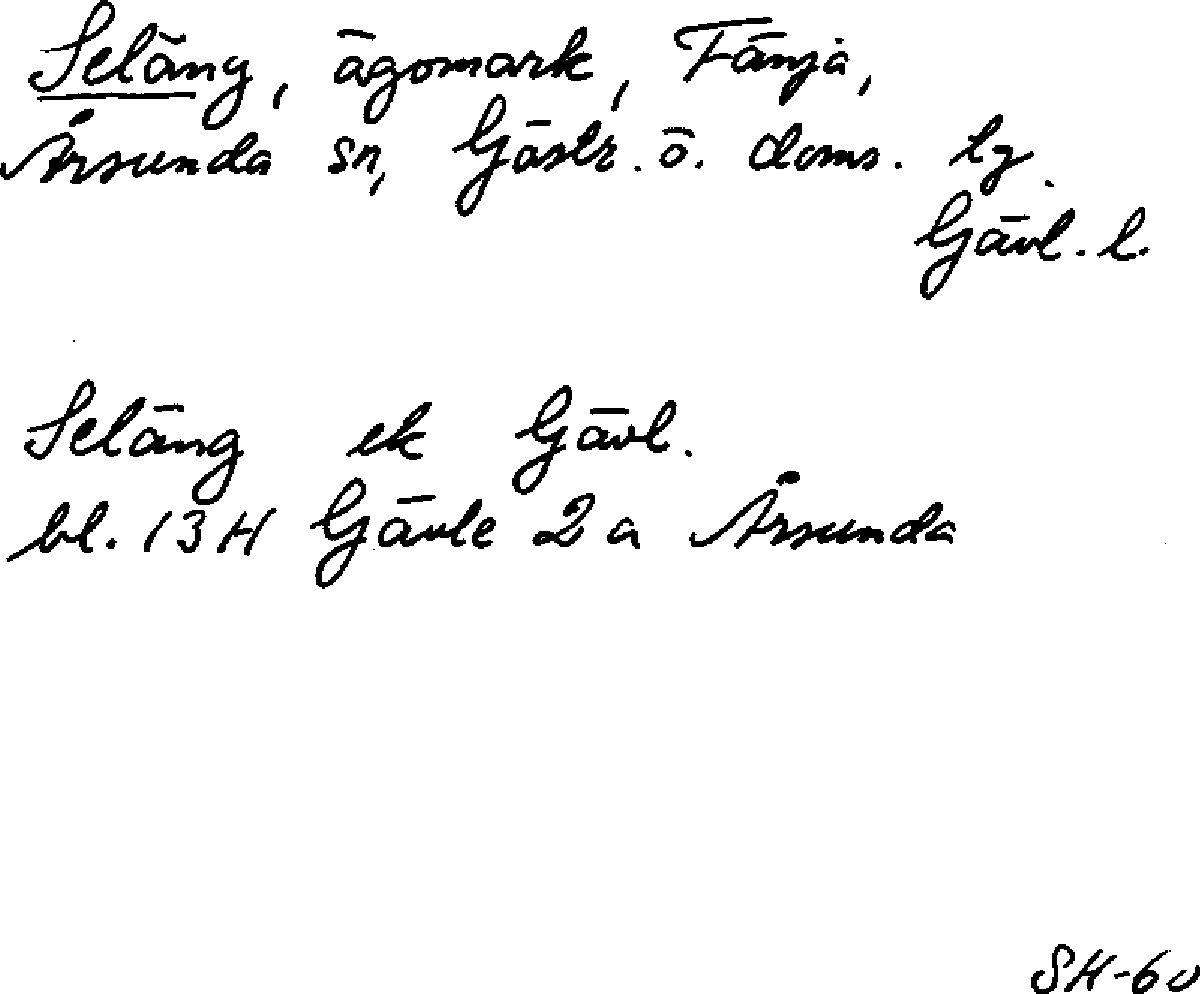 Seläng, ägomark, Fänja,
Årsunda sn, Gästr. ö. doms. lg.
Gävl. l.
Seläng ek Gävl.
bl. 13H Gävle 2a Årsunda
SH-60